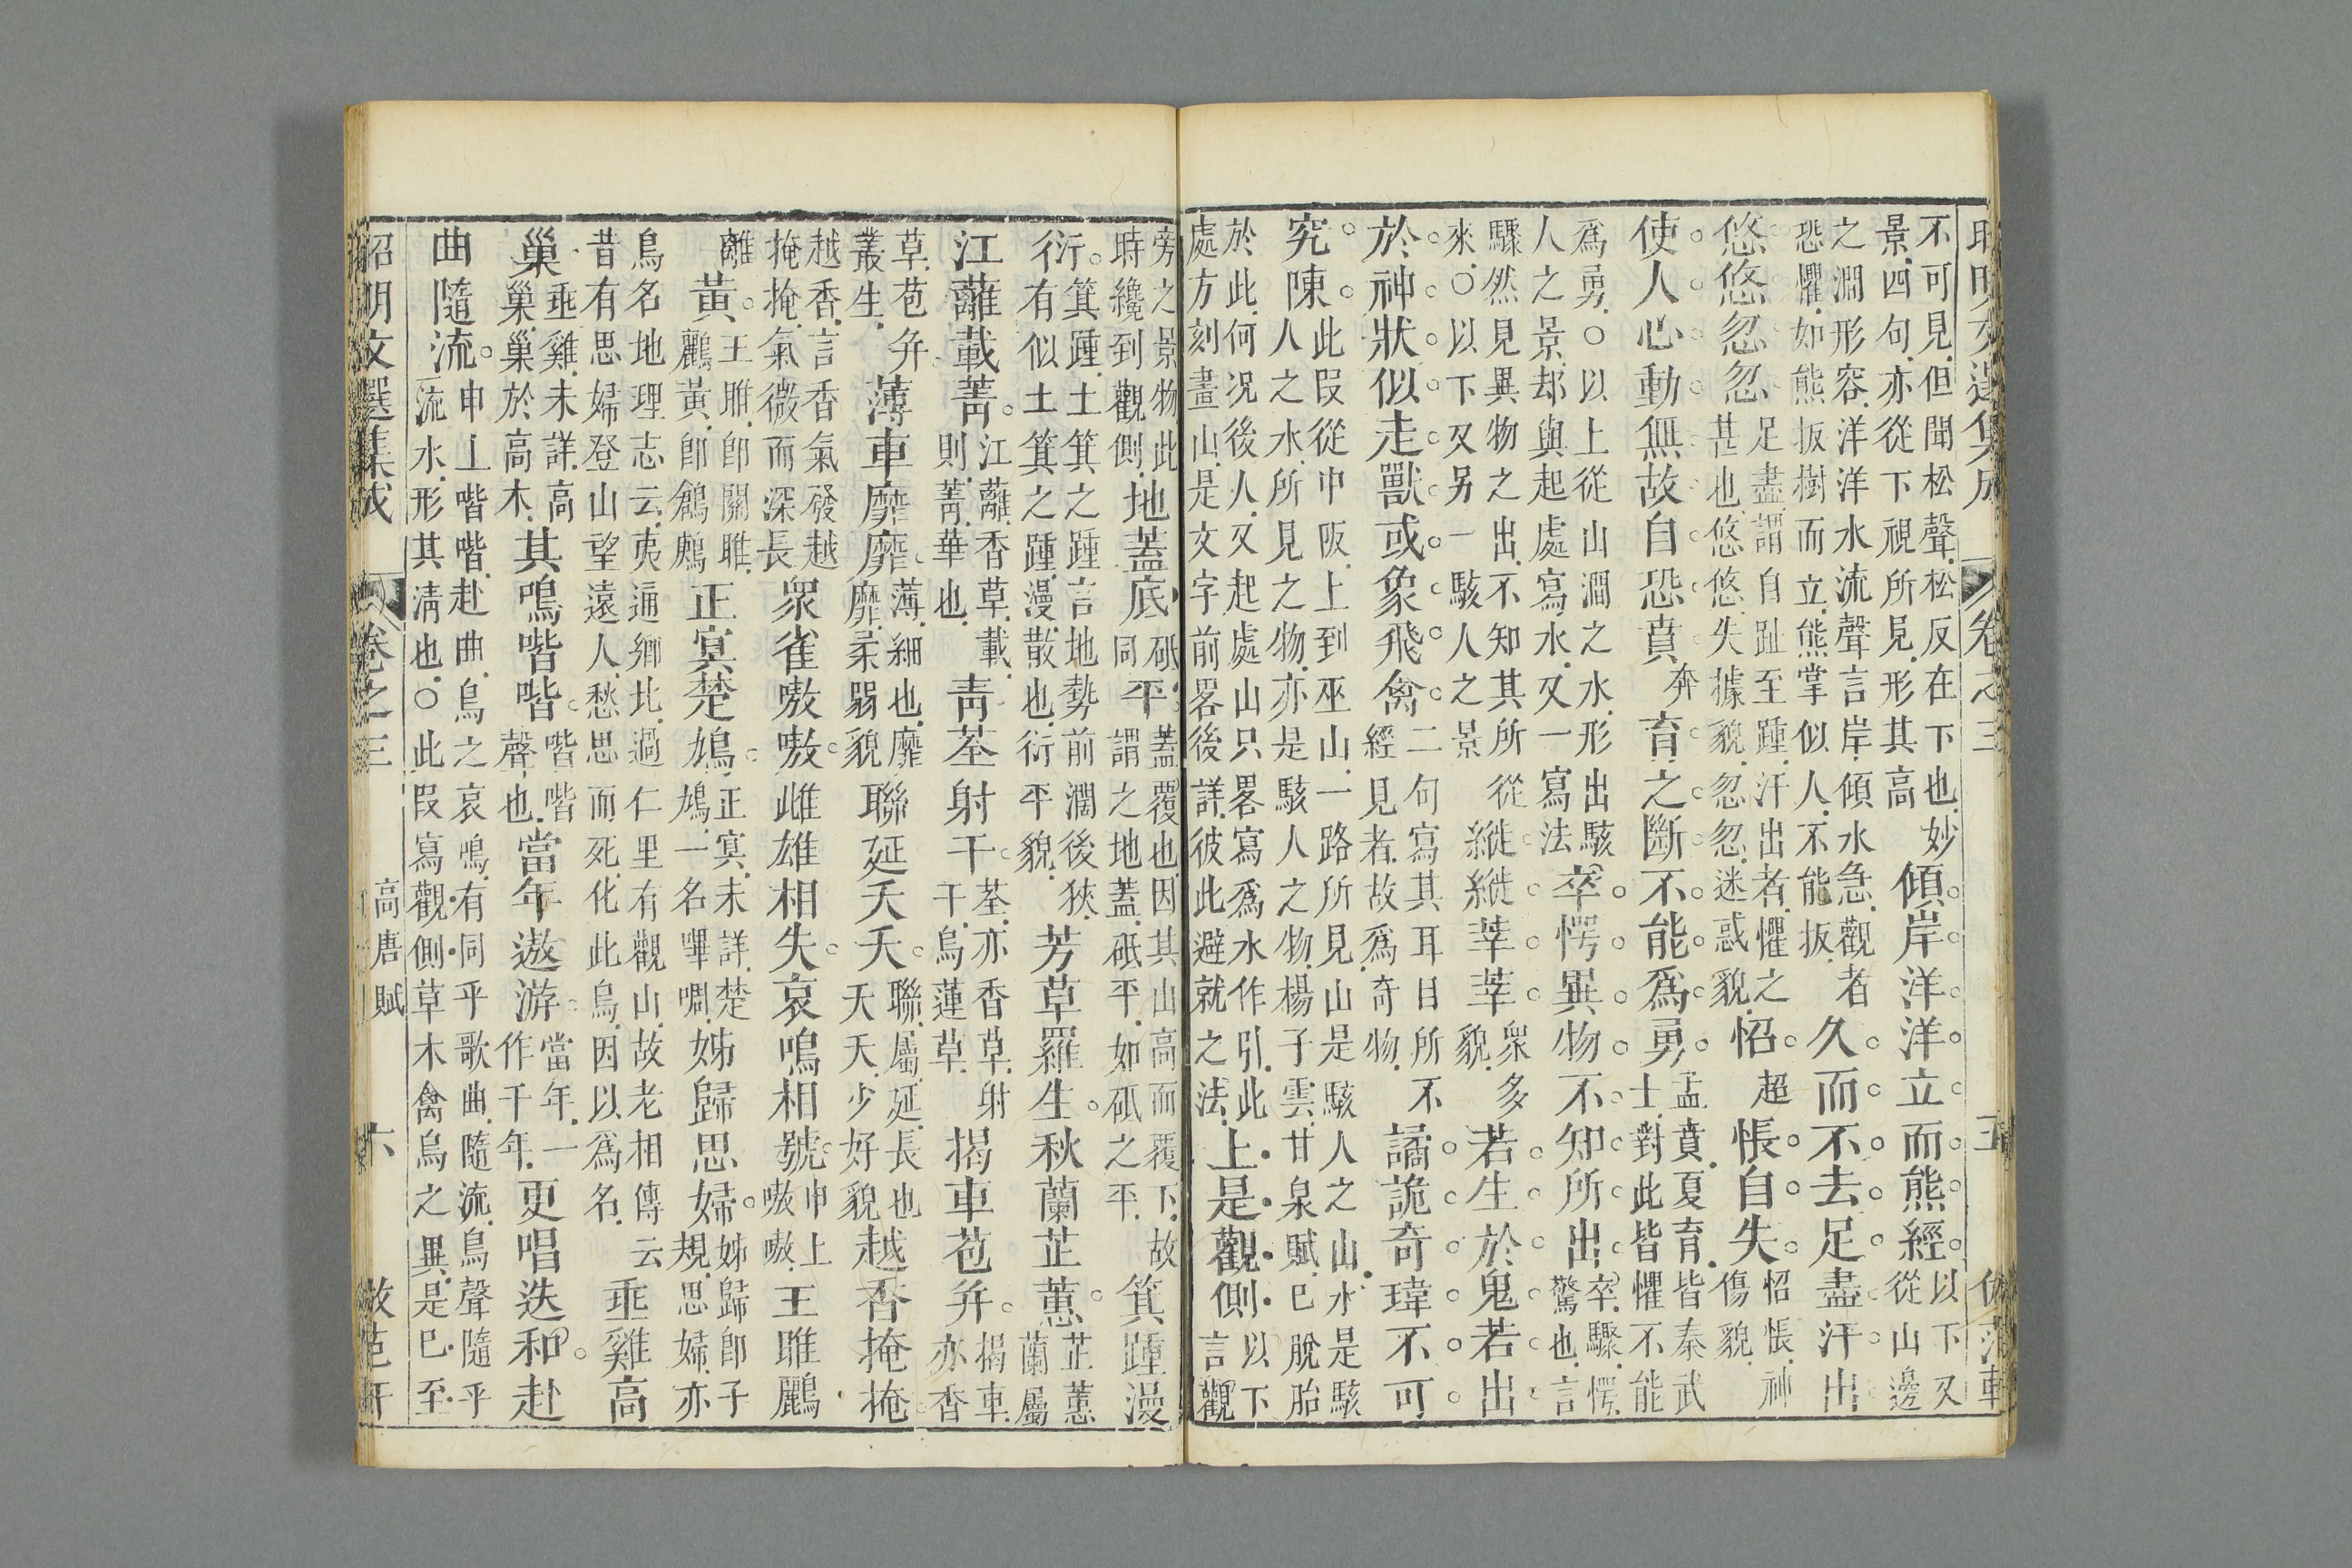 昭明文選集成 卷之三 五
不可見但聞松聲松反在下也妙
景四句亦從下視所見形其高
傾岸洋洋立而熊經
以下又
從山邊
之澗形容洋洋水流聲言岸傾水急觀者
恐懼如熊扳樹而立熊掌似人不能扳
久而不去足盡汗出
悠悠忽忽
足盡謂自趾至踵汗出者懼之
甚也悠悠失據貌忽忽迷惑貌
怊超悵自失
怊悵神
傷貌
使人心動無故自恐賁奔育之斷不能爲勇
孟賁夏育皆秦武
士對此皆懼不能
爲勇○以上從山澗之水形出駭
人之景却與起處寫水又一寫法
卒愕異物不知所出
卒驟愕
驚也言
驟然見異物之出不知其所從
來○以下又另一駭人之景
縱縱莘莘
衆多
貌
若生於鬼若出
於神狀似走獸或象飛禽
二句寫其耳目所不
經見者故爲奇物
譎詭奇瑋不可
究陳
此段從中阪上到巫山一路所見山是駭人之山水是駭
人之水所見之物亦是駭人之物楊子雲甘泉賦已脫胎
於此何况後人又起處山只畧寫爲水作引此
處方刻畫山是文字前畧後詳彼此避就之法
上是觀側
以下
言觀
旁之景物此
時纔到觀側
地蓋底
砥
同
平
蓋覆也因其山高而覆下故
謂之地蓋砥平如砥之平
箕踵漫
衍
箕踵土箕之踵言地勢前濶後狹
行有似土箕之踵漫散也衍平貌
芳草羅生秋蘭芷蕙
芷蕙
蘭屬
江蘺載菁
江蘺香草載
則菁華也
青荃射干
荃亦香草射
干烏蓮草
揭車苞并
揭車
亦香
草苞并
叢生
薄車靡靡
薄細也靡
靡柔弱貌
聯延夭夭
聯屬延長也
夭夭少好貌
越香掩掩
越香言香氣發越
掩掩氣微而深長
衆雀嗷嗷雌雄相失哀鳴相號
申上
嗷嗷
王雎鸝
離黃
王雎卽關雎
鸝黃卽鶬鶊
正冥楚鳩
正冥未詳楚
鳩一名嗶啁
姊歸思婦
姊歸卽子
規思婦亦
鳥名地理志云夷通鄉北過仁里有觀山故老相傳云
昔有思婦登山望遠人愁思而死化此鳥因以爲名
垂雞高
巢
垂雞未詳高
巢巢於高木
其鳴喈喈
喈喈
聲也
當年遨游
當年一
作千年
更唱迭和赴
曲隨流
申上喈喈赴曲鳥之哀鳴有同乎歌曲隨流鳥聲隨乎
流水形其淸也○此段寫觀側草木禽鳥之異是已至
昭明文選集成 卷之三 高唐賦 六